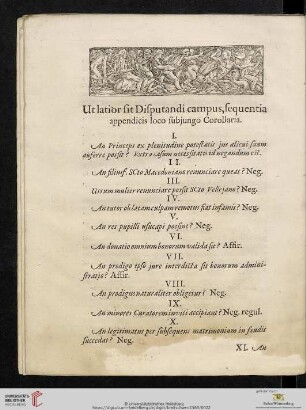 Ut latior sit Disputandi campus, sequentia
appendicis loco subjungo Corollaria.
I.
An Princeps ex plenitudine potestatis jus alicui suum
auferre possit? Extra casum necessitatis id negandum est.
II.
An filiusf. SCto Macedoniano renunciare queat? Neg.
III.
Utrum mulier renunciare possit SCto Vellejano? Neg.
IV.
An tutor ob latam culpam remotus fiat infamis? Neg.
V.
An res pupilli usucapi possint? Neg.
VI.
An donatio omnium bonorum valida sit? Affir.
VII.
An prodigo ipso jure interdicta sit bonorum admini-
stratio? Affir.
VIII.
An prodigus naturaliter obligetur? Neg.
IX.
An minores Curatorem inviti accipiant? Neg. regul.
X.
An legitimatus per subsequens matrimonium in feudis
succedat? Neg.
XI. An
UNIVERSITÄTS-
BIBLIOTHEK
HEIDELBERG
© Universitätsbibliothek Heidelberg